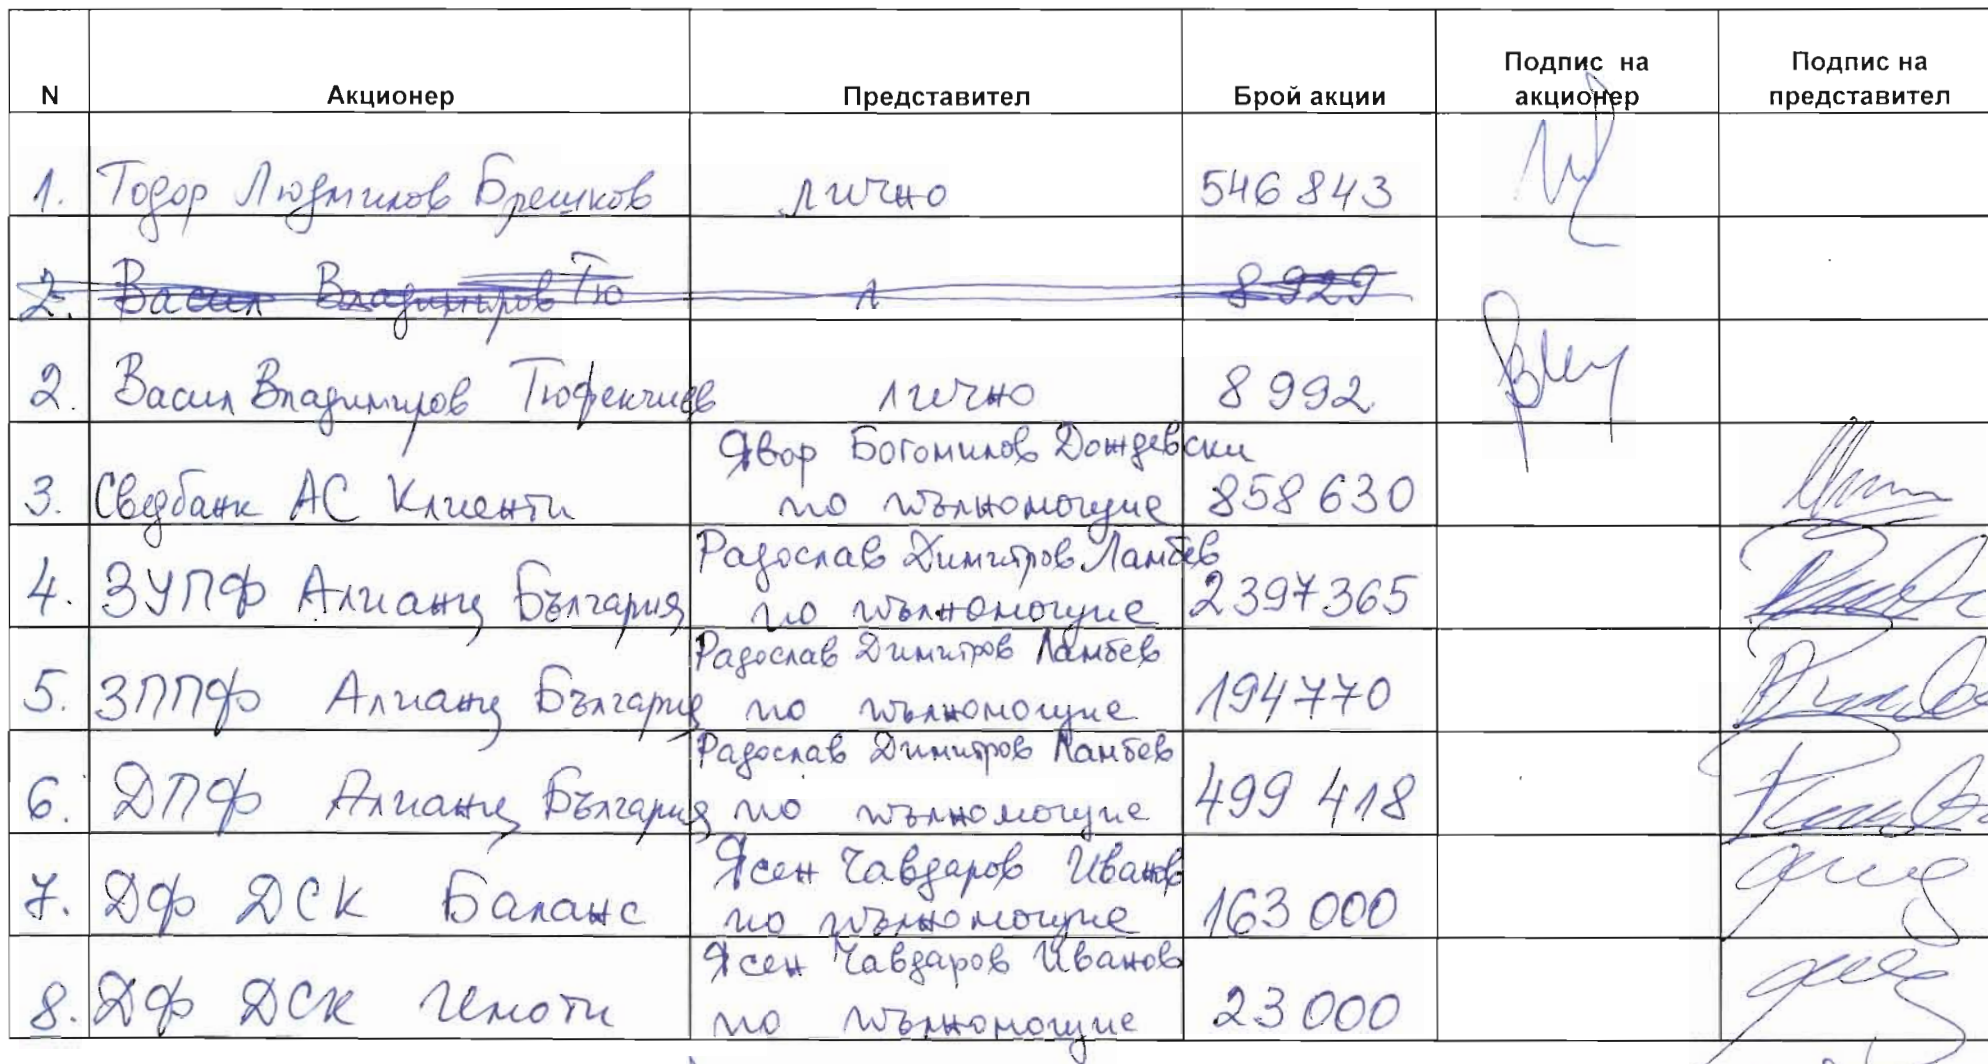 N Акционер Представител Брой акции Подпис на акционер Подпис на представител
1. Тодор Людмилов Брешков лично 546 843
2. Васил Владимиров Тю л 8 929
2. Васил Владимиров Тюфекчиев лично 8 992
3. Сведбанк АС Клиенти Явор Богомилов Дождевски по пълномощие 858 630
4. ЗУПФ Алианц България Радослав Димитров Ламбев по пълномощие 2397365
5. ЗППФ Алианц България Радослав Димитров Ламбев по пълномощие 194770
6. ДПФ Алианц България Радослав Димитров Ламбев по пълномощие 499 418
7. ДФ ДСК Баланс Ясен Чавдаров Иванов по пълномощие 163 000
8. ДФ ДСК Имоти Ясен Чавдаров Иванов по пълномощие 23 000